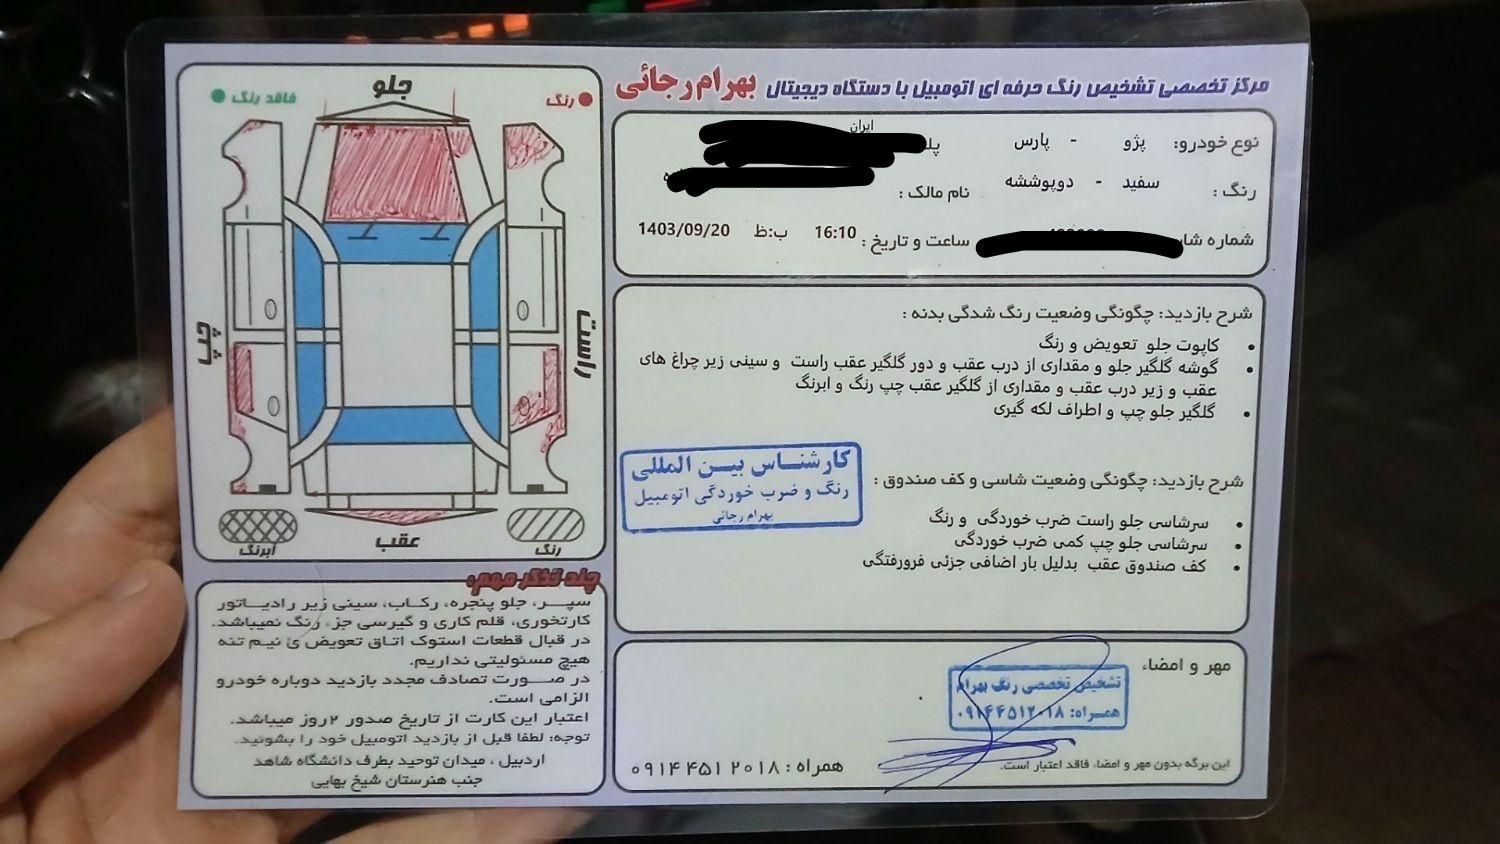 مرکز تخصصی تشخیص رنگ حرفه ای اتومبیل با دستگاه دیجیتال بهرام رجائی
نوع خودرو: پژو - پارس
ایران
رنگ : سفید - دوپوششه
نام مالک :
شماره
ساعت و تاریخ : 16:10 ب:ظ 1403/09/20
شرح بازدید: چگونگی وضعیت رنگ شدگی بدنه :
• کاپوت جلو تعویض و رنگ
• گوشه گلگیر جلو و مقداری از درب عقب و دور گلگیر عقب راست و سینی زیر چراغ های
عقب و زیر درب عقب و مقداری از گلگیر عقب چپ رنگ و ابرنگ
• گلگیر جلو چپ و اطراف لکه گیری
شرح بازدید: چگونگی وضعیت شاسی و کف صندوق :
• سرشاسی جلو راست ضرب خوردگی و رنگ
• سرشاسی جلو چپ کمی ضرب خوردگی
• کف صندوق عقب بدلیل بار اضافی جزئی فرورفتگی
کارشناس بین المللی
رنگ و ضرب خوردگی اتومبیل
بهرام رجائی
مهر و امضاء
تشخیص تخصصی رنگ بهرام
همراه: ۰۹۱۴۴۵۱۲۰۱۸
این برگه بدون مهر و امضاء فاقد اعتبار است.
همراه : ۰۹۱۴ ۴۵۱ ۲۰۱۸
جلو
رنگ
فاقد رنگ
راست
چپ
عقب
رنگ
آبرنگ
چند تذکر مهم:
سپر، جلو پنجره، رکاب، سینی زیر رادیاتور
کارتخوری، قلم کاری و گیرسی جزء رنگ نمیباشد.
در قبال قطعات استوک اتاق تعویض ئ نیم تنه
هیچ مسئولیتی نداریم.
در صورت تصادف مجدد بازدید دوباره خودرو
الزامی است.
اعتبار این کارت از تاریخ صدور ۲ روز میباشد.
توجه: لطفا قبل از بازدید اتومبیل خود را بشوئید.
اردبیل ، میدان توحید بطرف دانشگاه شاهد
جنب هنرستان شیخ بهایی